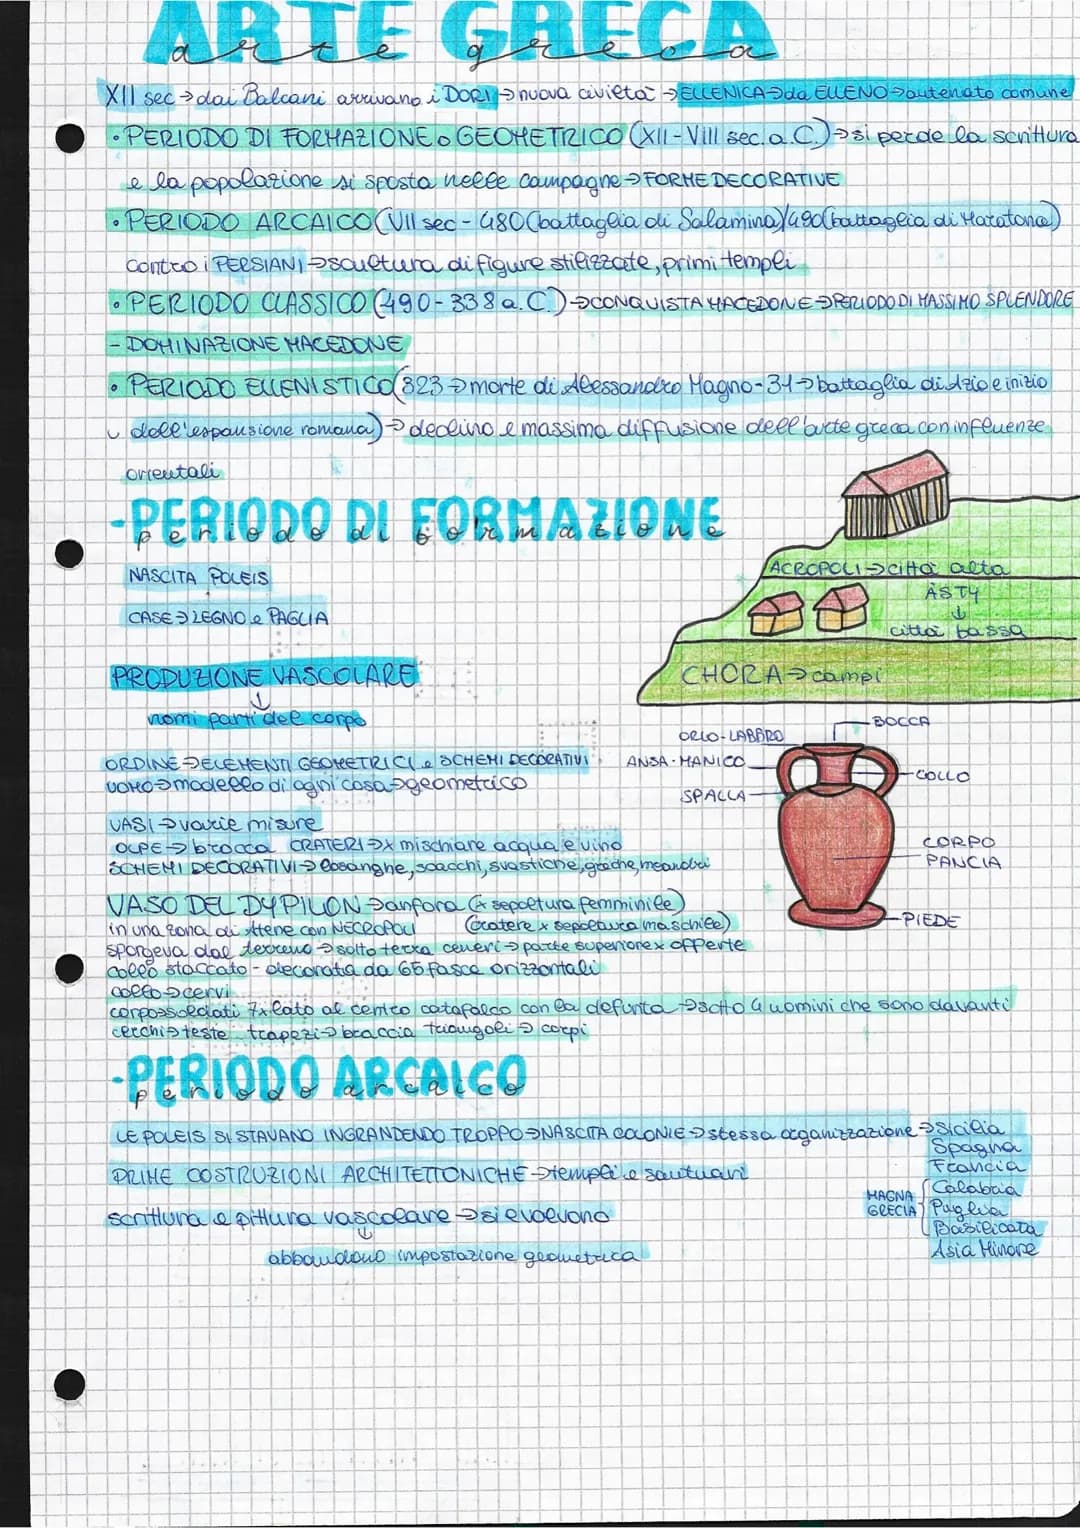 ARTE GRECA
arte greca
XII sec → dai Balcani arrivano i DORI → nuova civiltà → ELLENICA → da ELLENO → antenato comune
• PERIODO DI FORMAZIONE o GEOMETRICO (XII-VIII sec. a.C.) → si perde la scrittura
e la popolazione si sposta nelle campagne → FORME DECORATIVE
• PERIODO ARCAICO (VII sec - 480 (battaglia di Salamina)/490 (battaglia di Maratona)
contro i PERSIANI → scultura di figure stilizzate, primi templi
• PERIODO CLASSICO (490-338 a.C.) → CONQUISTA MACEDONE → PERIODO DI MASSIMO SPLENDORE
- DOMINAZIONE MACEDONE
• PERIODO ELLENISTICO (323 → morte di Alessandro Magno - 31 → battaglia di Azio e inizio
dell'espansione romana) → declino e massima diffusione dell'arte greca con influenze
orientali
- PERIODO DI FORMAZIONE
periodo di formazione
NASCITA POLEIS
CASE → LEGNO e PAGLIA
ACROPOLI → città alta
ASTY
↓
città bassa
CHORA → campi
PRODUZIONE VASCOLARE
↓
nomi parti del corpo
BOCCA
ORLO-LABBRO
ANSA-MANICO
COLLO
SPALLA
CORPO
PANCIA
PIEDE
ORDINE → ELEMENTI GEOMETRICI e SCHEMI DECORATIVI
UOMO → modello di ogni cosa → geometrico
VASI → varie misure
OLPE → brocca CRATERI → x mischiare acqua e vino
SCHEMI DECORATIVI → losanghe, scacchi, svastiche, greche, meandri
VASO DEL DYPILON → anfora (x sepoltura femminile)
in una zona di Atene con NECROPOLI (cratere x sepoltura maschile)
sporgeva dal terreno → sotto terra ceneri → parte superiore x offerte
collo staccato - decorata da 65 fasce orizzontali
collo → cervi
corpo → soldati 7 x lato al centro catafalco con la defunta → sotto 4 uomini che sono davanti
cerchi → teste trapezi → braccia triangoli → corpi
- PERIODO ARCAICO
periodo arcaico
LE POLEIS SI STAVANO INGRANDENDO TROPPO → NASCITA COLONIE → stessa organizzazione → Sicilia
Spagna
Francia
PRIME COSTRUZIONI ARCHITETTONICHE → templi e santuari
MAGNA GRECIA
Calabria
Puglia
Basilicata
Asia Minore
scrittura e pittura vascolare → si evolvono
↓
abbandono impostazione geometrica